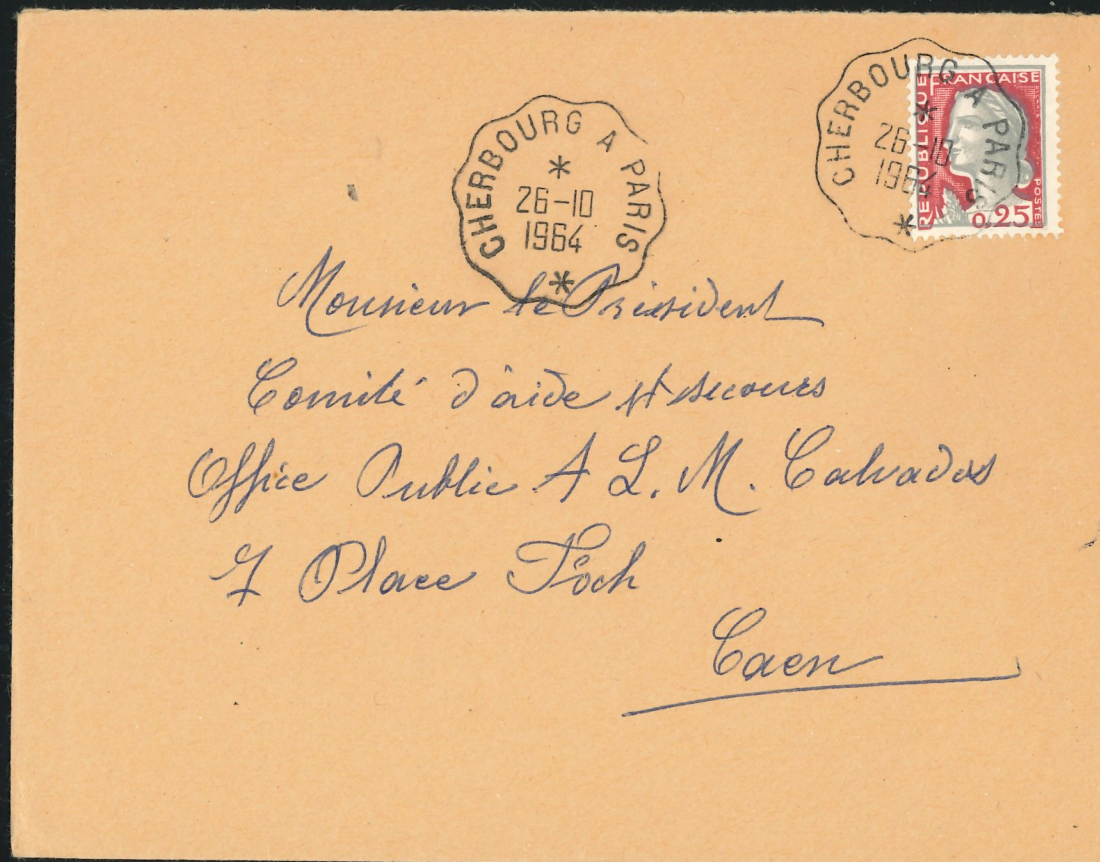 CHERBOURG A PARIS
*
26-10
1964
*
CHERBOURG A PARIS
*
26-10
1964
*
REPUBLIQUE FRANÇAISE
POSTES
0,25
Monsieur le Président
Comité d'aide et secours
Office Public A L. M. Calvados
7 Place Foch
Caen